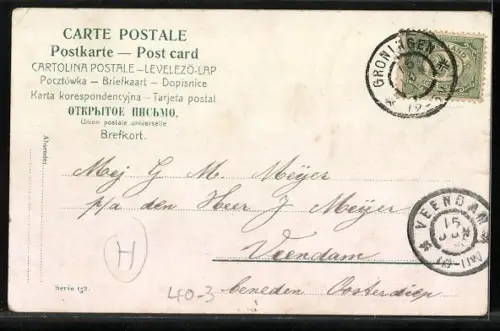 CARTE POSTALE
Postkarte — Post card
CARTOLINA POSTALE – LEVELEZÖ-LAP
Pocztówka – Briefkaart – Dopisnice
Karta korespondencyjna – Tarjeta postal
ОТКРЫТОЕ ПИСЬМО.
Union postale universelle
Brefkort.
Absender.
GRONINGEN
Mej G M. Meÿer
p/a den Heer J Meÿer
Veendam
beneden Oosterdiep
VEENDAM
15
H
Serie 158.
40-3